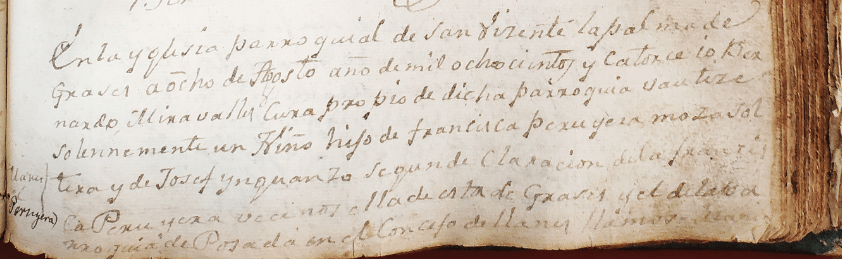 En la yglesia parroquial de san Vizente la palma de
Grases a ocho de Agosto año de mil ochocientos y Catorce io Ber
nardo Miravalles Cura propio de dicha parroquia vautize
solennemente un Niño hijo de francisca peruyera moza sol
tera y de Josef ynguanzo segun de Claracion de la francis
ca Peruyera vecinos ella de esta de Grases y el de la pa
rroquia de Posada en el Concejo de llanes llamose
Peruyera